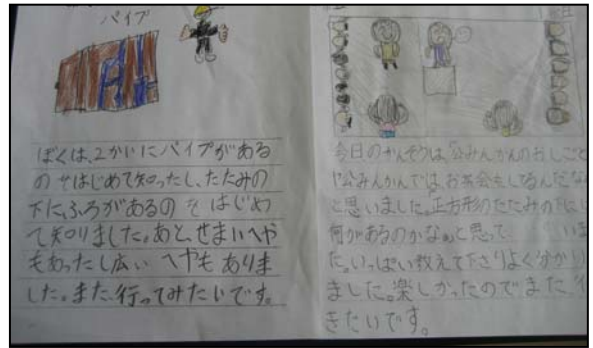 パイプ
ぼくは、2かいにパイプがある
のをはじめて知ったし、たたみの
下に、ふろがあるのをはじめ
て知りました。あと、せまいへや
もあったし広いへやもありま
した。また、行ってみたいです。
今日のかんそうは、公みんかんのおしごと
や公みんかんでは、お茶会をしてるんだな
と思いました。正方形のたたみの下に
何があるのかなぁと思って、いま
た。いっぱい教えて下さりよく分かり
ました。楽しかったのでまた行
きたいです。